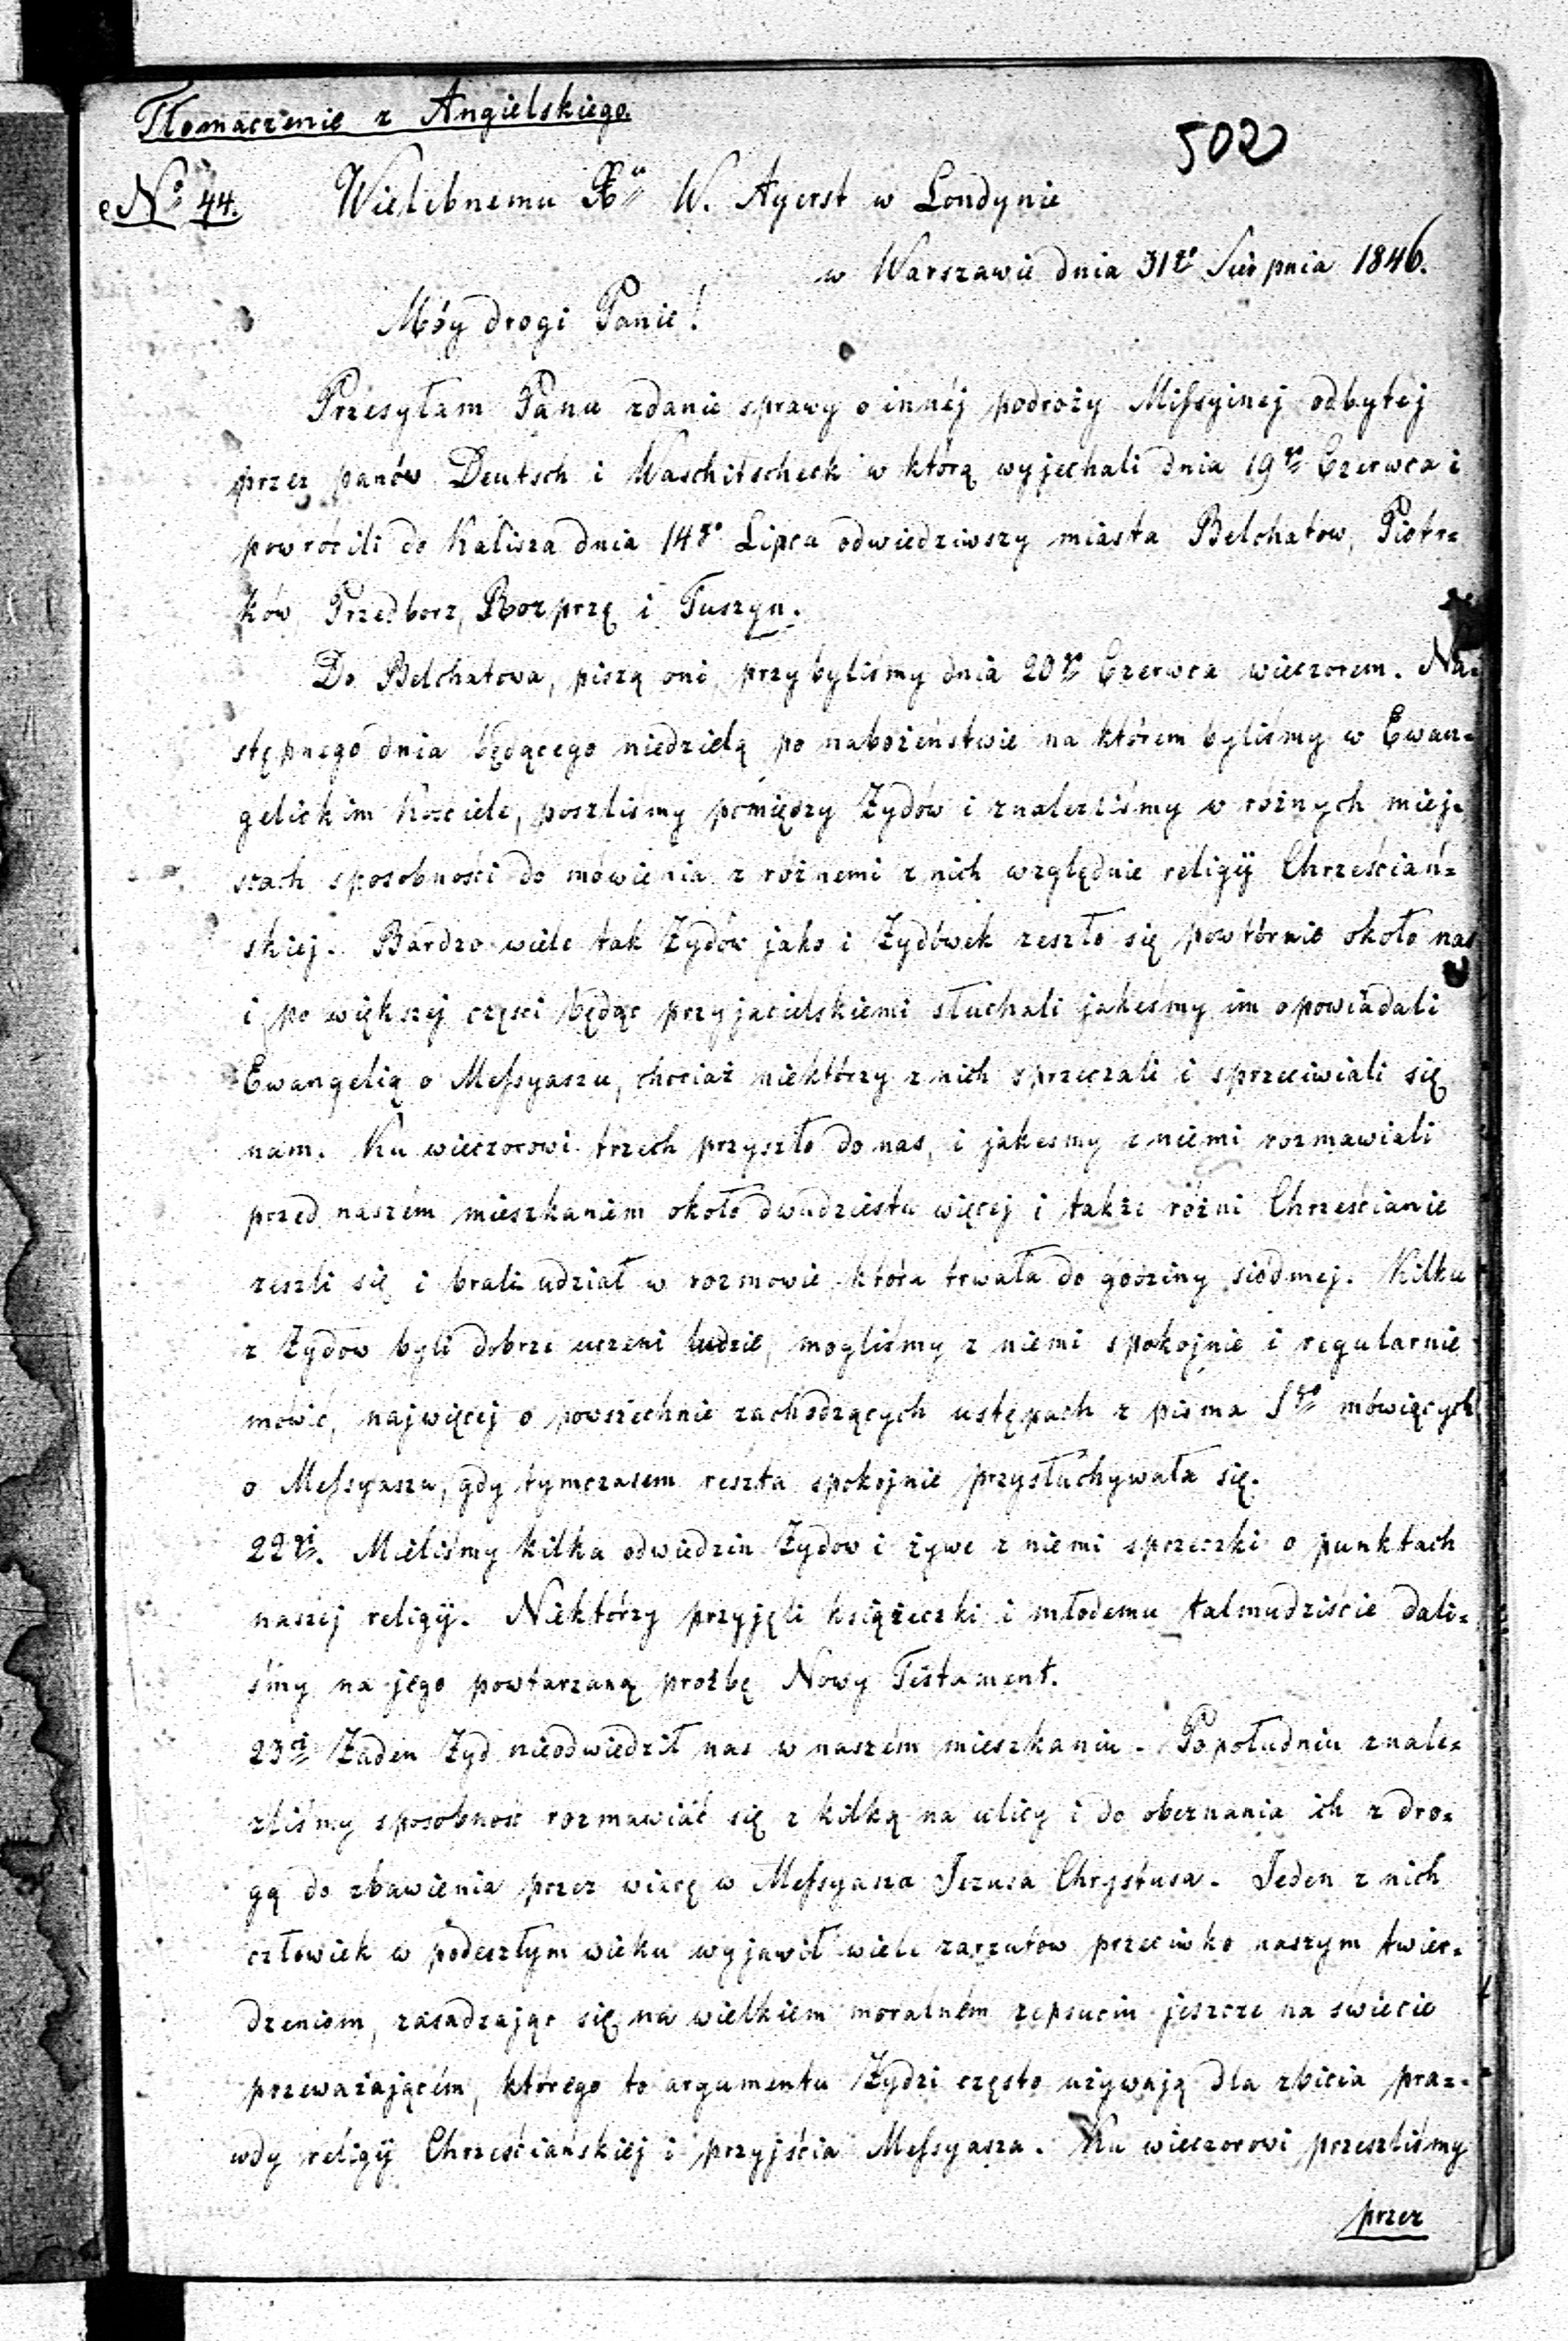 Tłomaczenie z Angielskiego.
502
No 44. Wielebnemu Xu W. Ayerst w Londynie
w Warszawie dnia 31go Sierpnia 1846.
Móy drogi Panie!
Przesyłam Panu zdanie sprawy o innéj podroży Missyinej odbytej
przez panów Deutsch i Waschitscheck w którą wyjechali dnia 19go Czerwca i
powrócili do Kalisza dnia 14go Lipca odwiedziwszy miasta Belchatow, Piotr=
ków Przedborz, Rozprzę i Tuszyn.
Do Belchatowa, piszą oni, przybyliśmy dnia 20go Czerwca wieczorem. Na=
stępnego dnia będącego niedzielą po nabożeństwie na którem byliśmy w Ewan=
gelickim Kościele, poszliśmy pomiędzy Żydów i znaleźliśmy w różnych miej=
scach sposobności do mówienia z różnemi z nich względnie religij Chrześciań=
skiej. Bardzo wiele tak Żydów jako i Żydówek zeszło się powtórnie około nas
i po większej części będąc przyjacielskiemi słuchali jakeśmy im opowiadali
Ewangelią o Messyaszu, chociaż niektórzy z nich sprzeczali i sprzeciwiali się
nam. Ku wieczorowi trzech przyszło do nas, i jakesmy z niemi rozmawiali
przed naszém mieszkaniem około dwudziestu więcej i także różni Chrześcianie
zeszli się i brali udział w rozmowie która trwała do godziny siódmej. Kilku
z Żydow byli dobrze uczeni ludzie, mogliśmy z niemi spokojnie i regularnie
mówić, najwięcej o powszechnie zachodzących ustępach z pisma Sgo mówiących
o Messyaszu, gdy tymczasem reszta spokojnie przysłuchywała się.
22gi. Mieliśmy kilka odwiedzin Żydow i żywe z niemi sprzeczki o punktach
naszej religij. Niektórzy przyjęli książeczki i młodemu talmudziście dali=
śmy na jego powtarzaną prośbę Nowy Testament.
23ci Żaden Żyd nieodwiedził nas w naszém mieszkaniu. Popołudniu znale=
zliśmy sposobność rozmawiać się z kilką na ulicy i do obeznania ich z dro=
gą do zbawienia przez wiarę w Messyasza Jezusa Chrystusa. Jeden z nich
człowiek w podeszłym wieku wyjawił wiele zarzutów przeciwko naszym twier=
dzeniom, zasadzając się na wielkiem moralném zepsuciu jeszcze na świecie
przeważającém, którego to argumentu Żydzi często używają dla zbicia pra=
wdy religij Chrześciańskiéj i przyjścia Messyasza. Ku wieczorowi przeszliśmy
przez